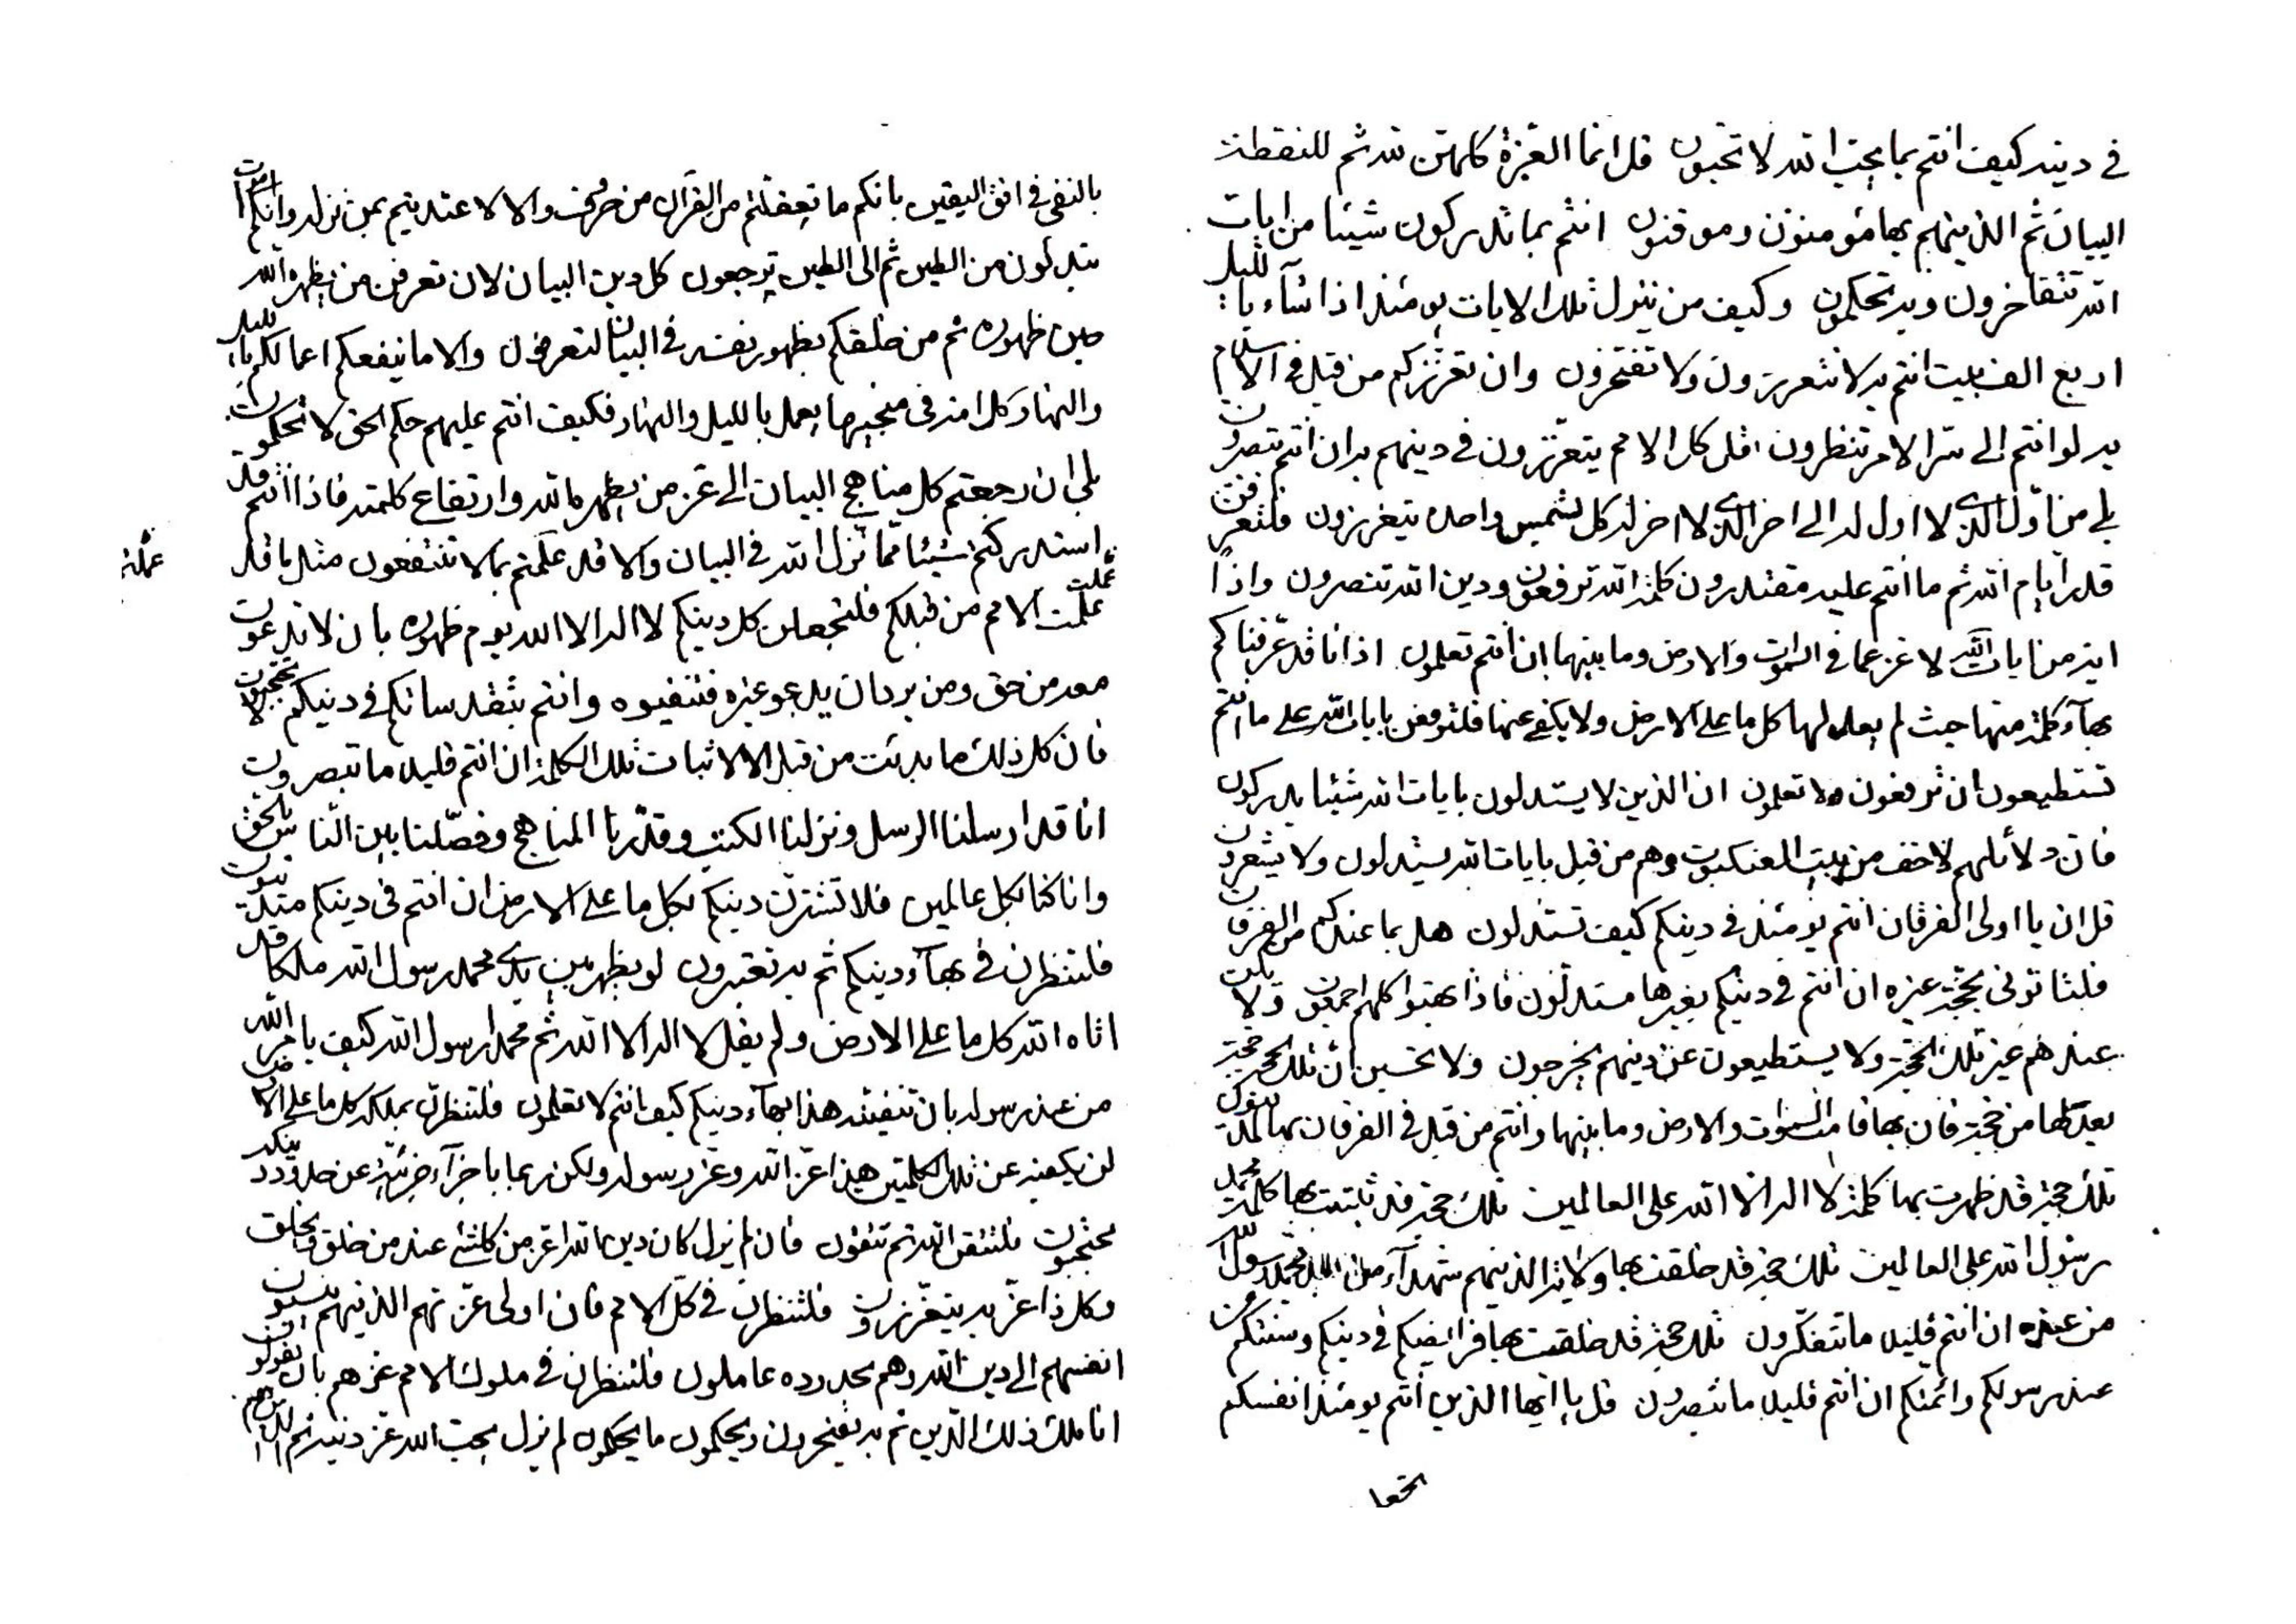 في دينه كيف انتم بما يحب الله لا تحبون قل انما العزة كلهن لله ثم للنقطة
البيان ثم الذينهم بها مؤمنون وموقنون انتم بما تدركون شيئا من ايات
الله تتفاخرون وبه تحكمون وكيف من ينزل تلك الايات يومئذ اذا شآء بالليل
اربع الف بيت انتم به لا تتعززون ولا تفتخرون وان تعززكم من قبل في الاسلام
به لو انتم الى سر الامر تنظرون قل كل الامم يتعززون في دينهم به ان انتم تبصرون
بلى من اول الذي لا اول له الى اخر الذي لا اخر له كل بشمس واحدة يتعززون فلتعرفن
قدر ايام الله ثم ما انتم عليه مقتدرون كلمة الله ترفعون ودين الله تنصرون واذا
اية من ايات الله لا عز عما في السموات والارض وما بينهما ان انتم تعلمون اذ انا قد عرفناكم
بهآء كلمة منها حيث لم يعدلها كل ما على الارض ولا يكفي عنها فلترفعن بايات الله على ما انتم
تستطيعون ان ترفعون ولا تعلمون ان الذين لا يستدلون بايات الله شيئا يدركون
فان دلائلهم لاخف من بيت العنكبوت وهم من قبل بايات الله يستدلون ولا يشعرون
قل ان يا اولى الفرقان انتم يومئذ في دينكم كيف تستدلون هل بما عندكم من الفرقان
فلتاتوني بحجة غيره ان انتم في دينكم بغيرها مستدلون فاذا بهتوا كلهم اجمعون ولا يكن
عندهم غير تلك الحجة ولا يستطيعون عن دينهم يخرجون ولا تحسبن ان تلك الحجة حجة
بعدلها من حجة فان بها قامت السموات والارض وما بينهما وانتم من قبل في الفرقان بها لتدينون
تلك حجة قد ظهرت بها كلمة لا اله الا الله على العالمين تلك حجة قد ثبتت بها كلمة محمد
رسول الله على العالمين تلك حجة قد خلقت بها ولاية الذينهم شهدآء من بعد محمد رسول الله
من عنده ان انتم قليلا ما تتفكرون تلك حجة قد خلقت بها فرايضكم في دينكم وسننكم من
عند رسولكم وائمتكم ان انتم قليلا ما تبصرون قل يا ايها الذين انتم يومئذ انفسكم
بالنفى في افق اليقين بانكم ما تعقلتم من القرآن من حرف والا لا عتديتم بمن نزله وانكم اموات
تبدلون من الطين ثم الى الطين ترجعون كل دين البيان لان تعرفن من يظهره الله
حين ظهوره ثم من خلقكم بظهور نفسه في البيان لتعرفون والا ما ينفعكم اعمالكم بالليل
والنهار كل امة في منهجها يعمل بالليل والنهار فكيف انتم عليهم حكم الحق لا تحكمون
بلى ان رجعتم كل مناهج البيان الى عز من يظهره الله وارتفاع كلمته فاذا انتم قد
استدركتم شيئا مما نزل الله في البيان والا قد عملتم بما لا تنتفعون مثل ما قد
عملت الامم من قبلكم فلتجعلن كل دينكم لا اله الا الله يوم ظهوره بان لا تدعون
معه من حق ومن يرد ان يدعو غيره فتنفيوه وانتم بثقد سانكم في دينكم لا تحتجبون
فان كل ذلك ما بدئت من قبل الا لاثبات تلك الكلمة ان انتم قليلا ما تبصرون
انا قد ارسلنا الرسل ونزلنا الكتب وقدرنا المناهج وفصلنا بين الناس بالحق
وانا كنا بكل عالمين فلا تشترن دينكم بكل ما على الارض ان انتم في دينكم متدينون
فلتنظرن في بهآء دينكم ثم به تعتبرون لو يظهر بين يدي محمد رسول الله ملكا قد
اتاه الله كل ما على الارض ولم يقل لا اله الا الله ثم محمد رسول الله كيف يامر الله
من عند رسوله بان تنفينه هذا بهآء دينكم كيف انتم لا تعلمون فلتنظرن بملكه كل ما على الارض
لن يكفيه عن تلك الكلمتين هذا عز الله وعز رسوله ولكن ربما باجزآء جزئية عن حدود دينكم
تحتجبون فلتتقن الله ثم تتقون فان لم يزل كان دين الله اعز من كلشئ عند من خلق ويخلق
وكل ذا عز به يتعززون فلتنظرن في كل الامم فان اولى عزتهم الذينهم ينسبون
انفسهم الى دين الله وهم بحدوده عاملون فلتنظرن في ملوك الامم عزهم بان يقولون
انا ملك ذلك الدين ثم به يفتخرون ويحكمون ما يحكمون لم يزل يحب الله عز دينه ثم
عملت